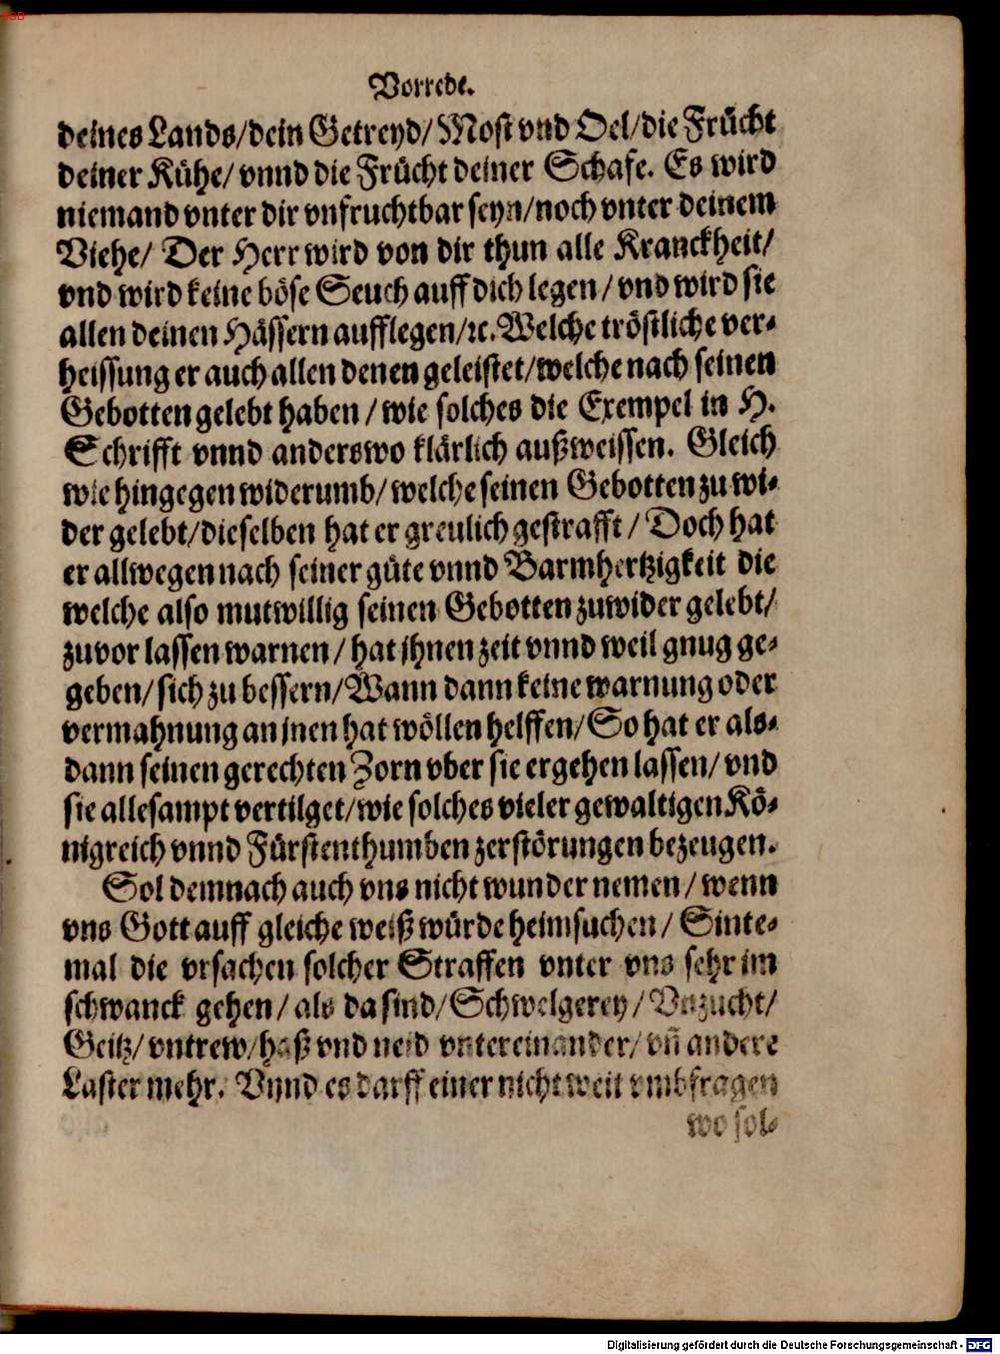 Vorrede.
deines Lands/dein Getreyd/Most vnd Oel/die Frücht
deiner Kühe/ vnnd die Frücht deiner Schafe. Es wird
niemand vnter dir vnfruchtbar seyn/noch vnter deinem
Viehe/ Der Herr wird von dir thun alle Kranckheit/
vnd wird keine böse Seuch auff dich legen/ vnd wird sie
allen deinen Hässern aufflegen/ꝛc. Welche tröstliche ver-
heissung er auch allen denen geleistet/welche nach seinen
Gebotten gelebt haben/ wie solches die Exempel in H.
Schrifft vnnd anderswo klärlich außweissen. Gleich
wie hingegen widerumb/ welche seinen Gebotten zu wi-
der gelebt/dieselben hat er greulich gestrafft/ Doch hat
er allwegen nach seiner güte vnnd Barmhertzigkeit die
welche also mutwillig seinen Gebotten zuwider gelebt/
zuvor lassen warnen/ hat jhnen zeit vnnd weil gnug ge-
geben/ sich zu bessern/ Wann dann keine warnung oder
vermahnung an jnen hat wöllen helffen/ So hat er als-
dann seinen gerechten Zorn vber sie ergehen lassen/ vnd
sie allesampt vertilget/wie solches vieler gewaltigen Kö-
nigreich vnnd Fürstenthumben zerstörungen bezeugen.
Sol demnach auch vns nicht wunder nemen/ wenn
vns Gott auff gleiche weiß würde heimsuchen/ Sinte-
mal die vrsachen solcher Straffen vnter vns sehr im
schwanck gehen/ als da sind/ Schwelgerey/ Vnzucht/
Geitz/ vntrew/ haß vnd neid vntereinander/ vñ andere
Laster mehr. Vnnd es darff einer nicht weit vmbfragen
wo sol-
Digitalisierung gefördert durch die Deutsche Forschungsgemeinschaft - DFG